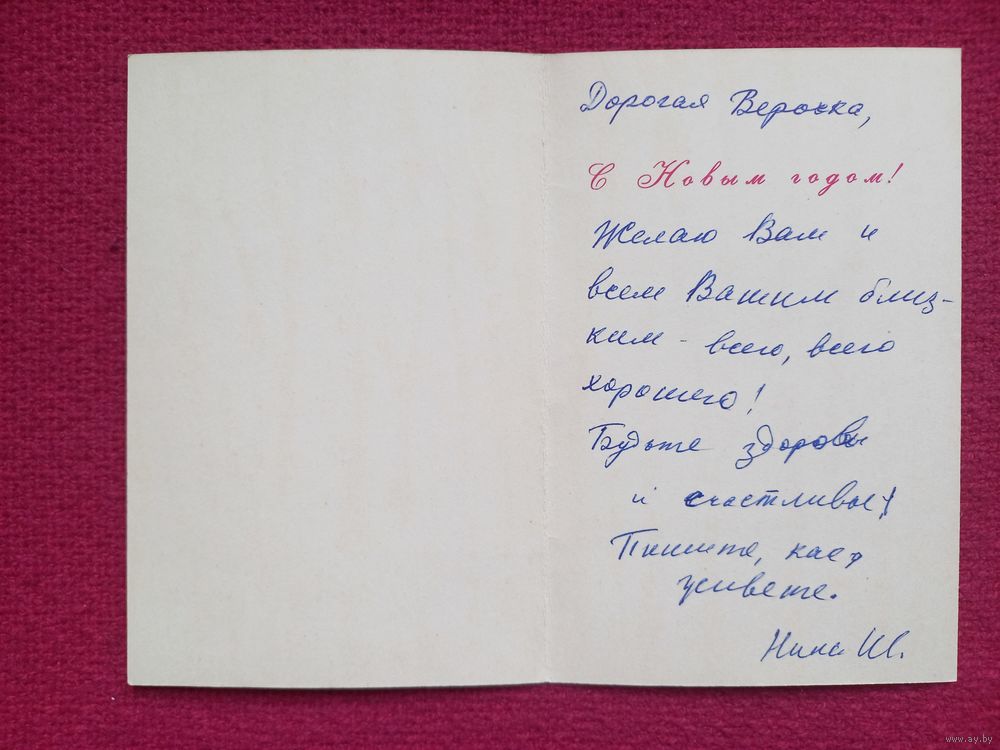 Дорогая Верочка,
С Новым годом!
Желаю Вам и
всем Вашим близ-
ким - всего, всего
хорошего!
Будьте здоровы
и счастливы!
Пишите, как
живете.
Нина Ш.
www.ay.by